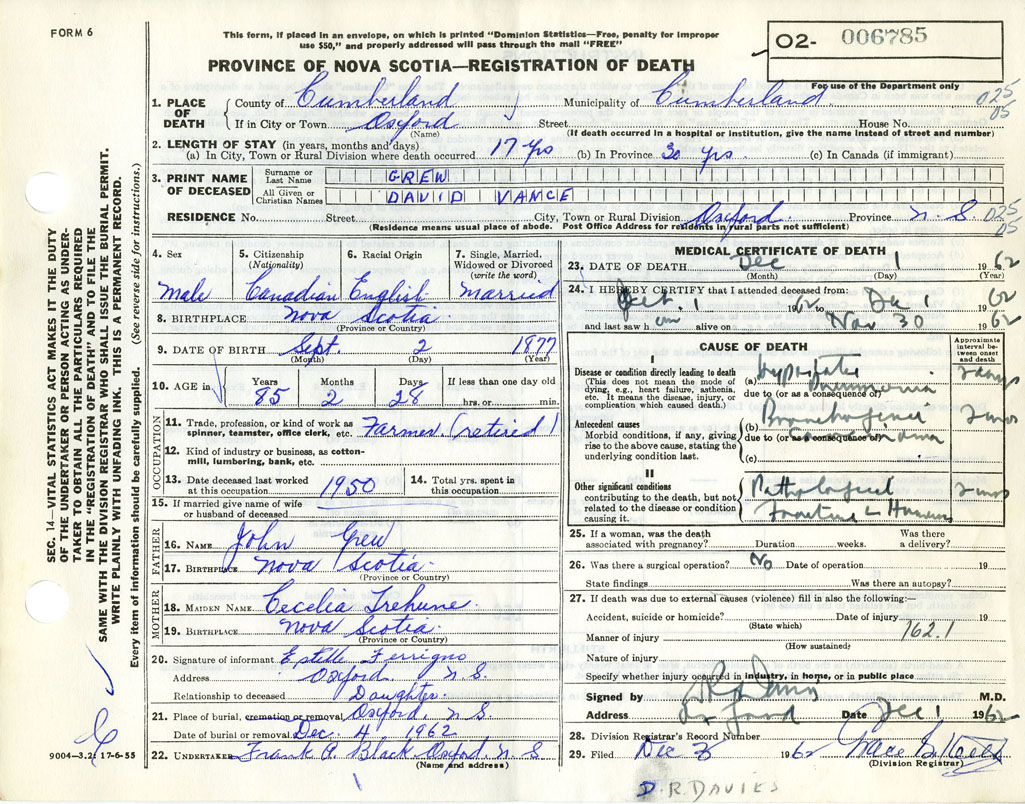 FORM 6
This form, if placed in an envelope, on which is printed "Dominion Statistics—Free, penalty for improper
use $50," and properly addressed will pass through the mail "FREE"
O2- 006785
PROVINCE OF NOVA SCOTIA—REGISTRATION OF DEATH
For use of the Department only
1. PLACE OF DEATH County of Cumberland Municipality of Cumberland 025
05
If in City or Town Oxford Street House No.
(Name) (If death occurred in a hospital or institution, give the name instead of street and number)
2. LENGTH OF STAY (in years, months and days)
(a) In City, Town or Rural Division where death occurred 17 yrs (b) In Province 30 yrs. (c) In Canada (if immigrant)
3. PRINT NAME OF DECEASED Surname or Last Name GREW
All Given or Christian Names DAVID VANCE
RESIDENCE No. Street City, Town or Rural Division Oxford. Province N. S. 025
05
(Residence means usual place of abode. Post Office Address for residents in rural parts not sufficient)
4. Sex 5. Citizenship (Nationality) 6. Racial Origin 7. Single, Married, Widowed or Divorced (write the word)
Male Canadian English Married
8. BIRTHPLACE Nova Scotia
(Province or Country)
9. DATE OF BIRTH Sept. 2 1877
(Month) (Day) (Year)
10. AGE in Years Months Days If less than one day old
85 2 28 hrs. or min.
OCCUPATION
11. Trade, profession, or kind of work as
spinner, teamster, office clerk, etc. Farmer (retired)
12. Kind of industry or business, as cotton-
mill, lumbering, bank, etc.
13. Date deceased last worked at this occupation 1950 14. Total yrs. spent in this occupation
15. If married give name of wife
or husband of deceased
FATHER
16. NAME John Grew
17. BIRTHPLACE Nova Scotia
(Province or Country)
MOTHER
18. MAIDEN NAME Cecelia Trehune.
19. BIRTHPLACE Nova Scotia.
(Province or Country)
20. Signature of informant Estelle Ferrigno
Address Oxford. N. S.
Relationship to deceased Daughter.
21. Place of burial, cremation or removal Oxford, N. S.
Date of burial or removal Dec. 4 1962
22. UNDERTAKER Frank P. Black Oxford, N. S
(Name and address)
MEDICAL CERTIFICATE OF DEATH
23. DATE OF DEATH Dec 1 1962
(Month) (Day) (Year)
24. I HEREBY CERTIFY that I attended deceased from:
1 1962 to Dec 1 1962
and last saw him alive on Nov 30 1962
CAUSE OF DEATH
Approximate interval between onset and death
I
Disease or condition directly leading to death
(This does not mean the mode of
dying, e.g., heart failure, asthenia,
etc. It means the disease, injury, or
complication which caused death.)
(a) Hypostatic Pneumonia 2 days
due to (or as a consequence of)
Antecedent causes
Morbid conditions, if any, giving
rise to the above cause, stating the
underlying condition last.
(b) Bronchogenic 2 mos
due to (or as a consequence of) Carcinoma
(c)
II
Other significant conditions
contributing to the death, but not
related to the disease or condition
causing it.
Pathological 2 mos
Fracture L Humerus
25. If a woman, was the death
associated with pregnancy? Duration weeks. Was there a delivery?
26. Was there a surgical operation? No Date of operation 19
State findings Was there an autopsy?
27. If death was due to external causes (violence) fill in also the following:—
Accident, suicide or homicide? Date of injury 19
(State which) 162.1
Manner of injury
(How sustained)
Nature of injury
Specify whether injury occurred in industry, in home, or in public place
Signed by D R Davies M.D.
Address Oxford Date Dec 1 1962
28. Division Registrar's Record Number
29. Filed Dec 3 1962 Grace
(Division Registrar)
D.R. DAVIES
SEC. 14—VITAL STATISTICS ACT MAKES IT THE DUTY
OF THE UNDERTAKER OR PERSON ACTING AS UNDER-
TAKER TO OBTAIN ALL THE PARTICULARS REQUIRED
IN THE "REGISTRATION OF DEATH" AND TO FILE THE
SAME WITH THE DIVISION REGISTRAR WHO SHALL ISSUE THE BURIAL PERMIT.
WRITE PLAINLY WITH UNFADING INK. THIS IS A PERMANENT RECORD.
Every item of information should be carefully supplied. (See reverse side for instructions.)
9004—3.2: 17-6-55